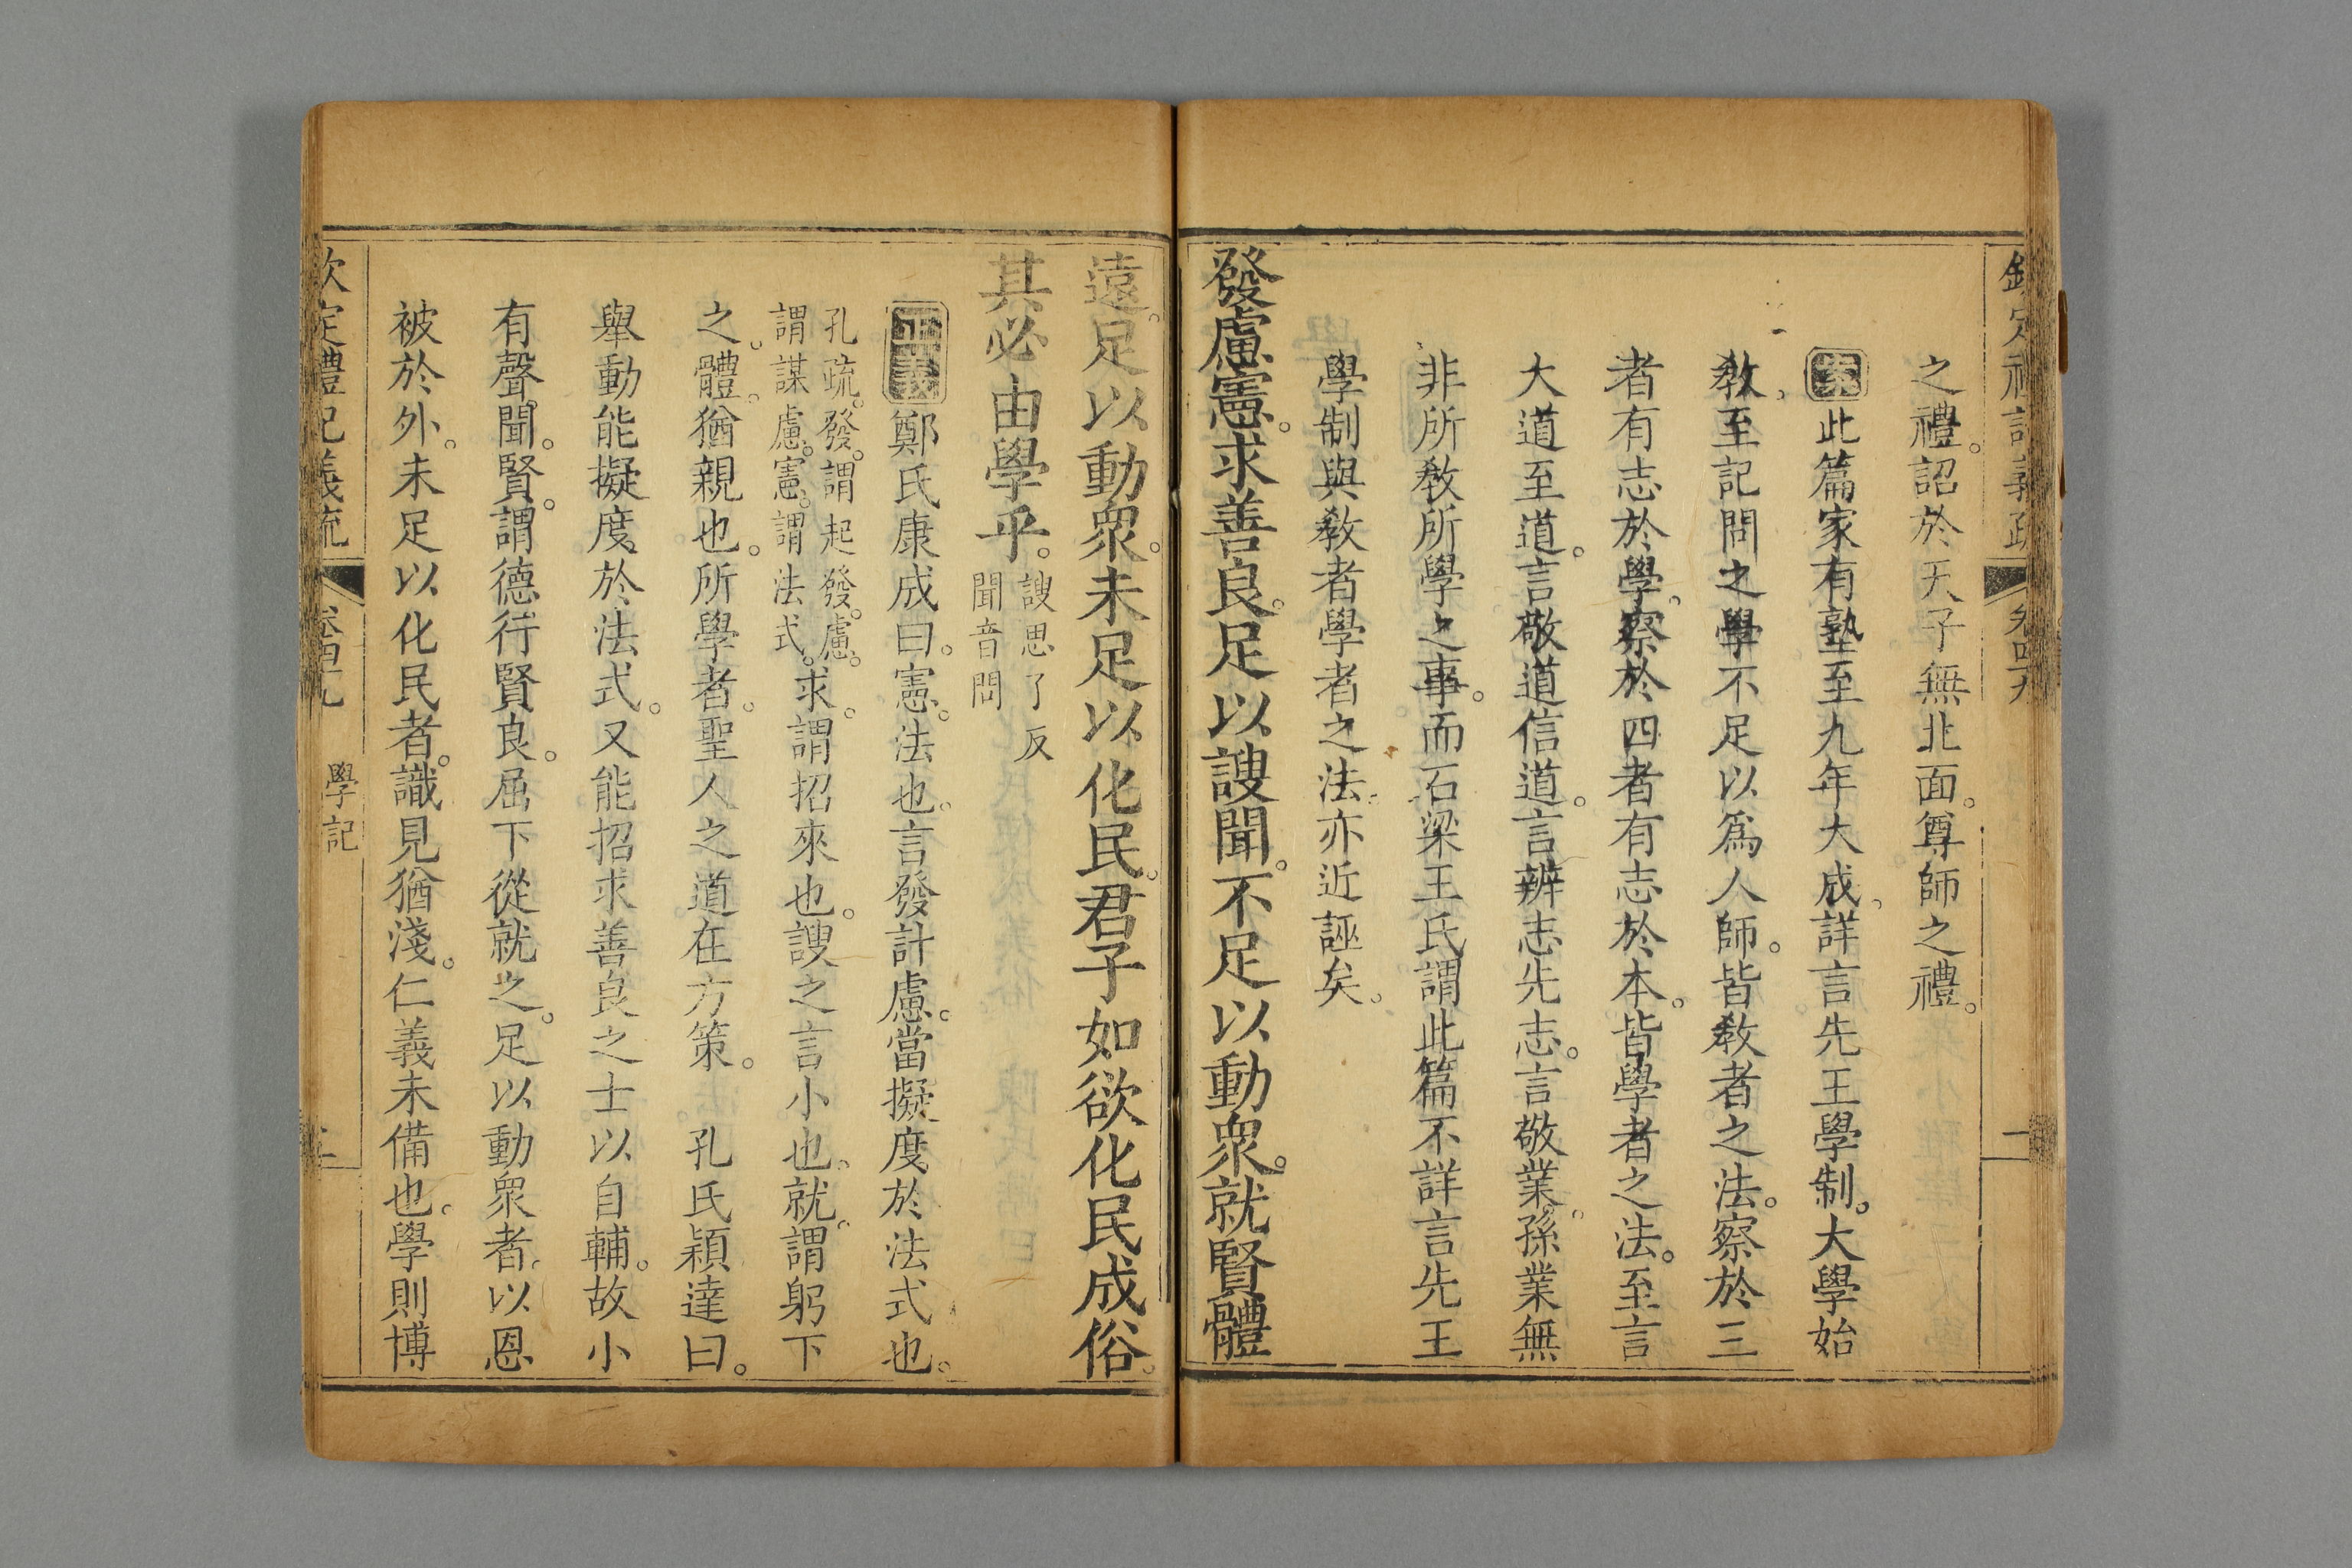 欽定禮記義疏 卷四十九 一
之禮。詔於天子無北面。尊師之禮。
案此篇家有塾至九年大成。詳言先王學制。大學始
教。至記問之學不足以爲人師。皆教者之法。察於三
者有志於學。察於四者有志於本。皆學者之法。至言
大道至道。言敬道信道。言辨志先志。言敬業。孫業無
非所教所學之事。而石梁王氏謂此篇不詳言先王
學制與教者學者之法。亦近誣矣。
發慮憲。求善良。足以謏聞。不足以動衆。就賢體
遠。足以動衆。未足以化民。君子如欲化民成俗。
其必由學乎。謏思了反
聞音問
正義鄭氏康成曰。憲。法也。言發計慮。當擬度於法式也。
孔疏。發。謂起發。慮。
謂謀慮。憲。謂法式。求。謂招來也。謏之言小也。就。謂躬下
之。體。猶親也。所學者。聖人之道在方策。 孔氏穎達曰。
舉動能擬度於法式。又能招求善良之士以自輔。故小
有聲聞。賢。謂德行賢良。屈下從就之。足以動衆者。以恩
被於外。未足以化民者。識見猶淺。仁義未備也。學則博
欽定禮記義疏 卷四十九 學記